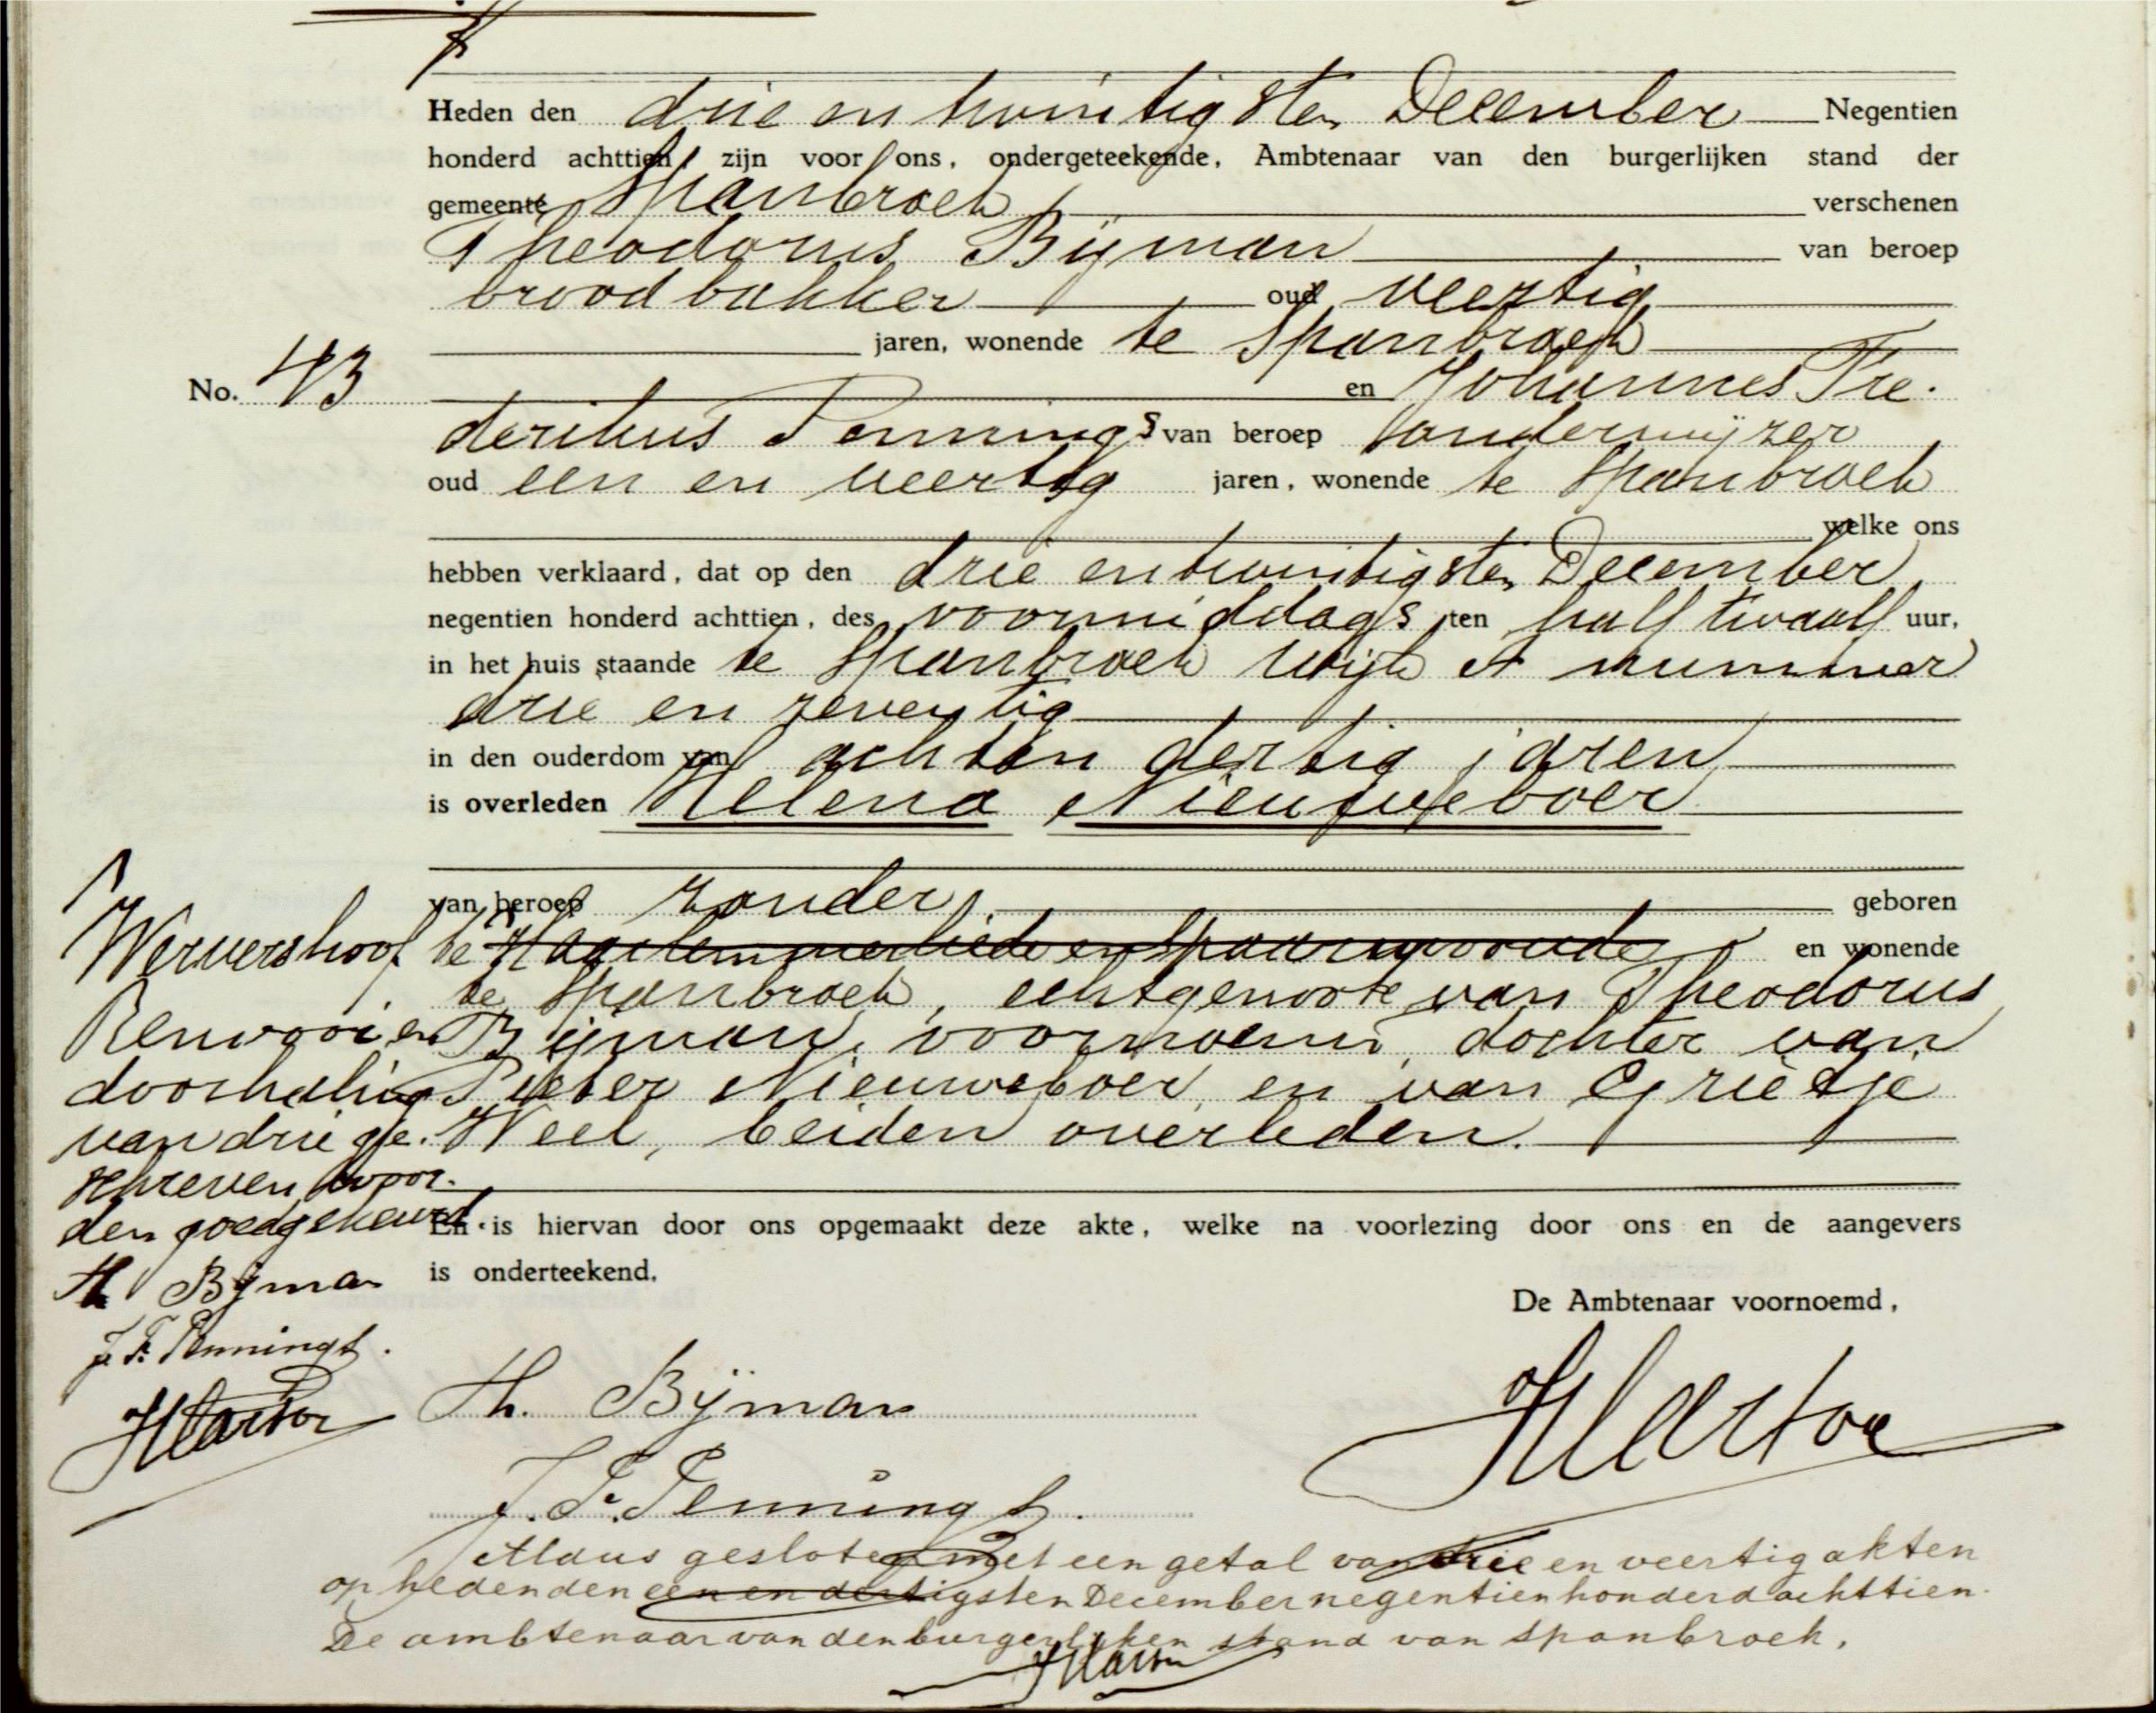 Heden den drie en twintigsten December Negentien
honderd achttien, zijn voor ons, ondergeteekende, Ambtenaar van den burgerlijken stand der
gemeente Spanbroek verschenen
Theodorus Bijman van beroep
broodbakker oud veertig
jaren, wonende te Spanbroek
No. 43 en Johannes Fre-
derikus Pennings van beroep onderwijzer
oud een en veertig jaren, wonende te Spanbroek
welke ons
hebben verklaard, dat op den drie en twintigsten December
negentien honderd achttien, des voormiddags ten half twaalf uur,
in het huis staande te Spanbroek wijk A nummer
drie en zeventig
in den ouderdom van acht en dertig jaren
is overleden Helena Nieuweboer
van beroep zonder geboren
te Haarlemmerliede en Spaarnwoude en wonende
te Spanbroek, echtgenoote van Theodorus
Bijman, voornoemd, dochter van
Pieter Nieuweboer en van Grietje
Weel, beiden overleden.
En is hiervan door ons opgemaakt deze akte, welke na voorlezing door ons en de aangevers
is onderteekend.
De Ambtenaar voornoemd,
Wervershoof
Renvooi en
doorhaling
van drie ge-
schreven woor-
den goedgekeurd.
Th Bijman
J. F. Pennings.
Th. Bijman
J. F. Pennings.
Aldus gesloten met een getal van drie en veertig akten
op heden den een en dertigsten December negentienhonderd achttien.
De ambtenaar van den burgerlijken stand van Spanbroek,